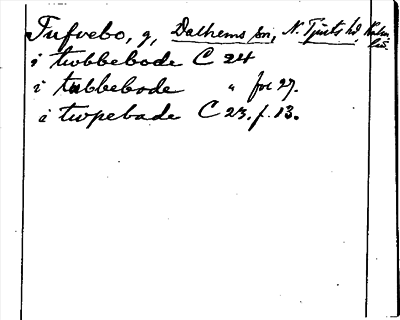 Tufvebo, g, Dalhems sn, N. Tjusts hd, Kalm. län.
i twbbebode C 24
i tubbebode " for 27.
i twpebade C 23. f. 13.